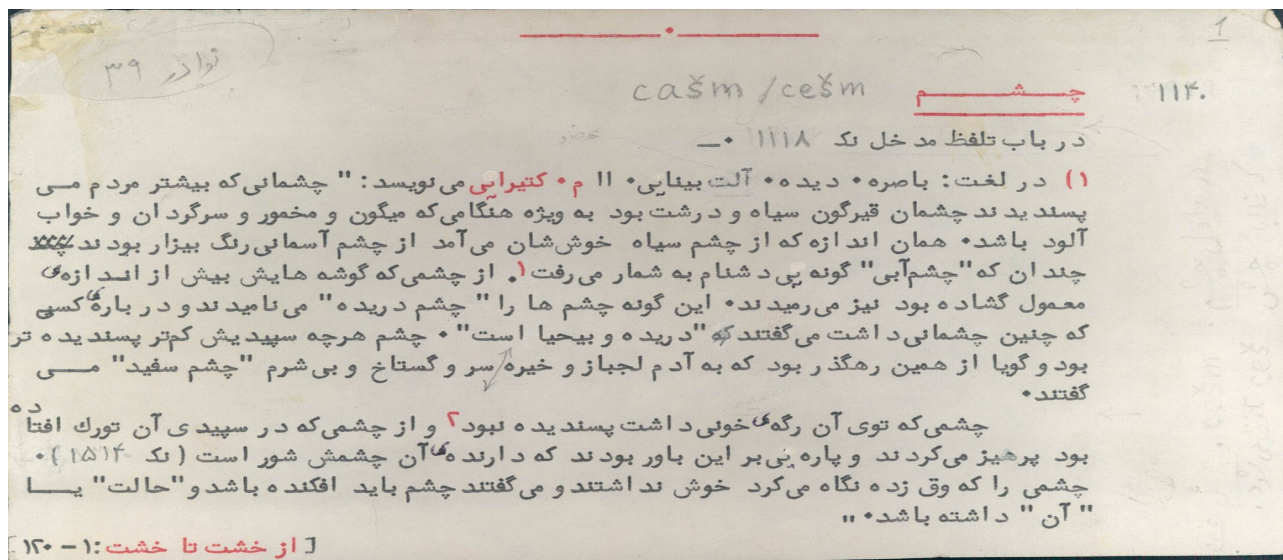 1
نوادر ۳۹
۱۱۴۰ چشم cašm / cešm
در باب تلفظ مدخل نک ۱۱۱۱۸ ۰ــ
۱) در لغت: باصره۰ دیده۰ آلت بینایی۰ اا م۰ کتیرایی می‌نویسد: " چشمانی‌که بیشتر مردم مــی
پسندیدند چشمان قیرگون سیاه و درشت بود به ویژه هنگامی‌که میگون و مخمور و سرگردان و خواب
آلود باشد۰ همان اندازه که از چشم سیاه خوش‌شان می‌آمد از چشم آسمانی‌رنگ بیزار بودند
چندان که "چشم‌آبی" گونه یی‌دشنام به شمار می‌رفت۱. از چشمی‌که گوشه هایش بیش از انـدازهٔ
معمول گشاده بود نیز می‌رمیدند۰ این گونه چشم ها را " چشم دریده" می‌نامیدند و در بارهٔ کسـی
که چنین چشمانی‌داشت می‌گفتند که "دریده و بیحیا است" ۰ چشم هرچه سپیدیش کم‌تر پسندیده تر
بود و گویا از همین رهگذر بود که به آدم لجباز و خیره سر و گستاخ و بی‌شرم "چشم سفید" مــی
گفتند۰
چشمی‌که توی آن رگهٔ خونی‌داشت پسندیده نبود۲ و از چشمی‌که در سپیدی آن تورك افتاده
بود پرهیز می‌کردند و پاره یی‌بر این باور بودند که دارندهٔ آن چشمش شور است (نک ۱۵۱۴)۰
چشمی را که وق زده نگاه می‌کرد خوش نداشتند و می‌گفتند چشم باید افکنده باشد و "حالت" یــا
" آن " داشته باشد۰ "
[ از خشت تا خشت :۱ – ۱۲۰ ]